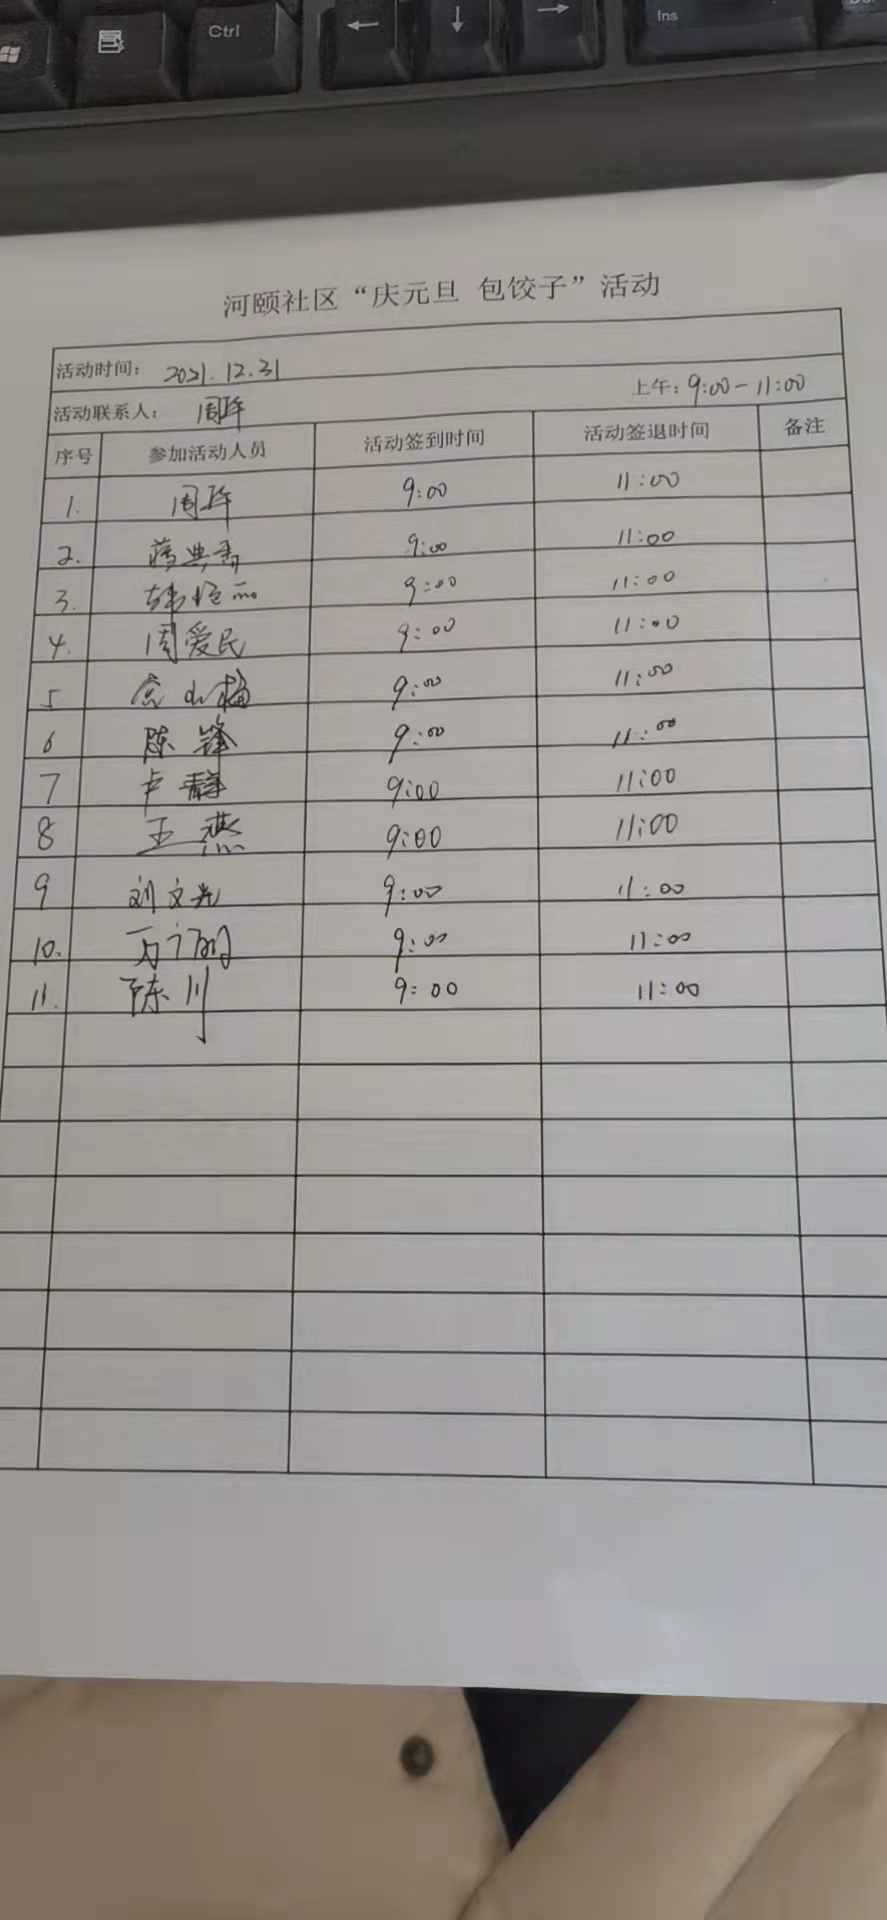 Ctrl
←
↓
→
Ins
河颐社区“庆元旦 包饺子”活动
活动时间: 2021.12.31
活动联系人: 上午: 9:00-11:00
序号 参加活动人员 活动签到时间 活动签退时间 备注
1. 9:00 11:00
2. 9:00 11:00
3. 9:00 11:00
4. 周爱民 9:00 11:00
5 9:00 11:00
6 陈锋 9:00 11:00
7 卢静 9:00 11:00
8 王燕 9:00 11:00
9 刘文光 9:00 11:00
10. 9:00 11:00
11. 陈川 9:00 11:00